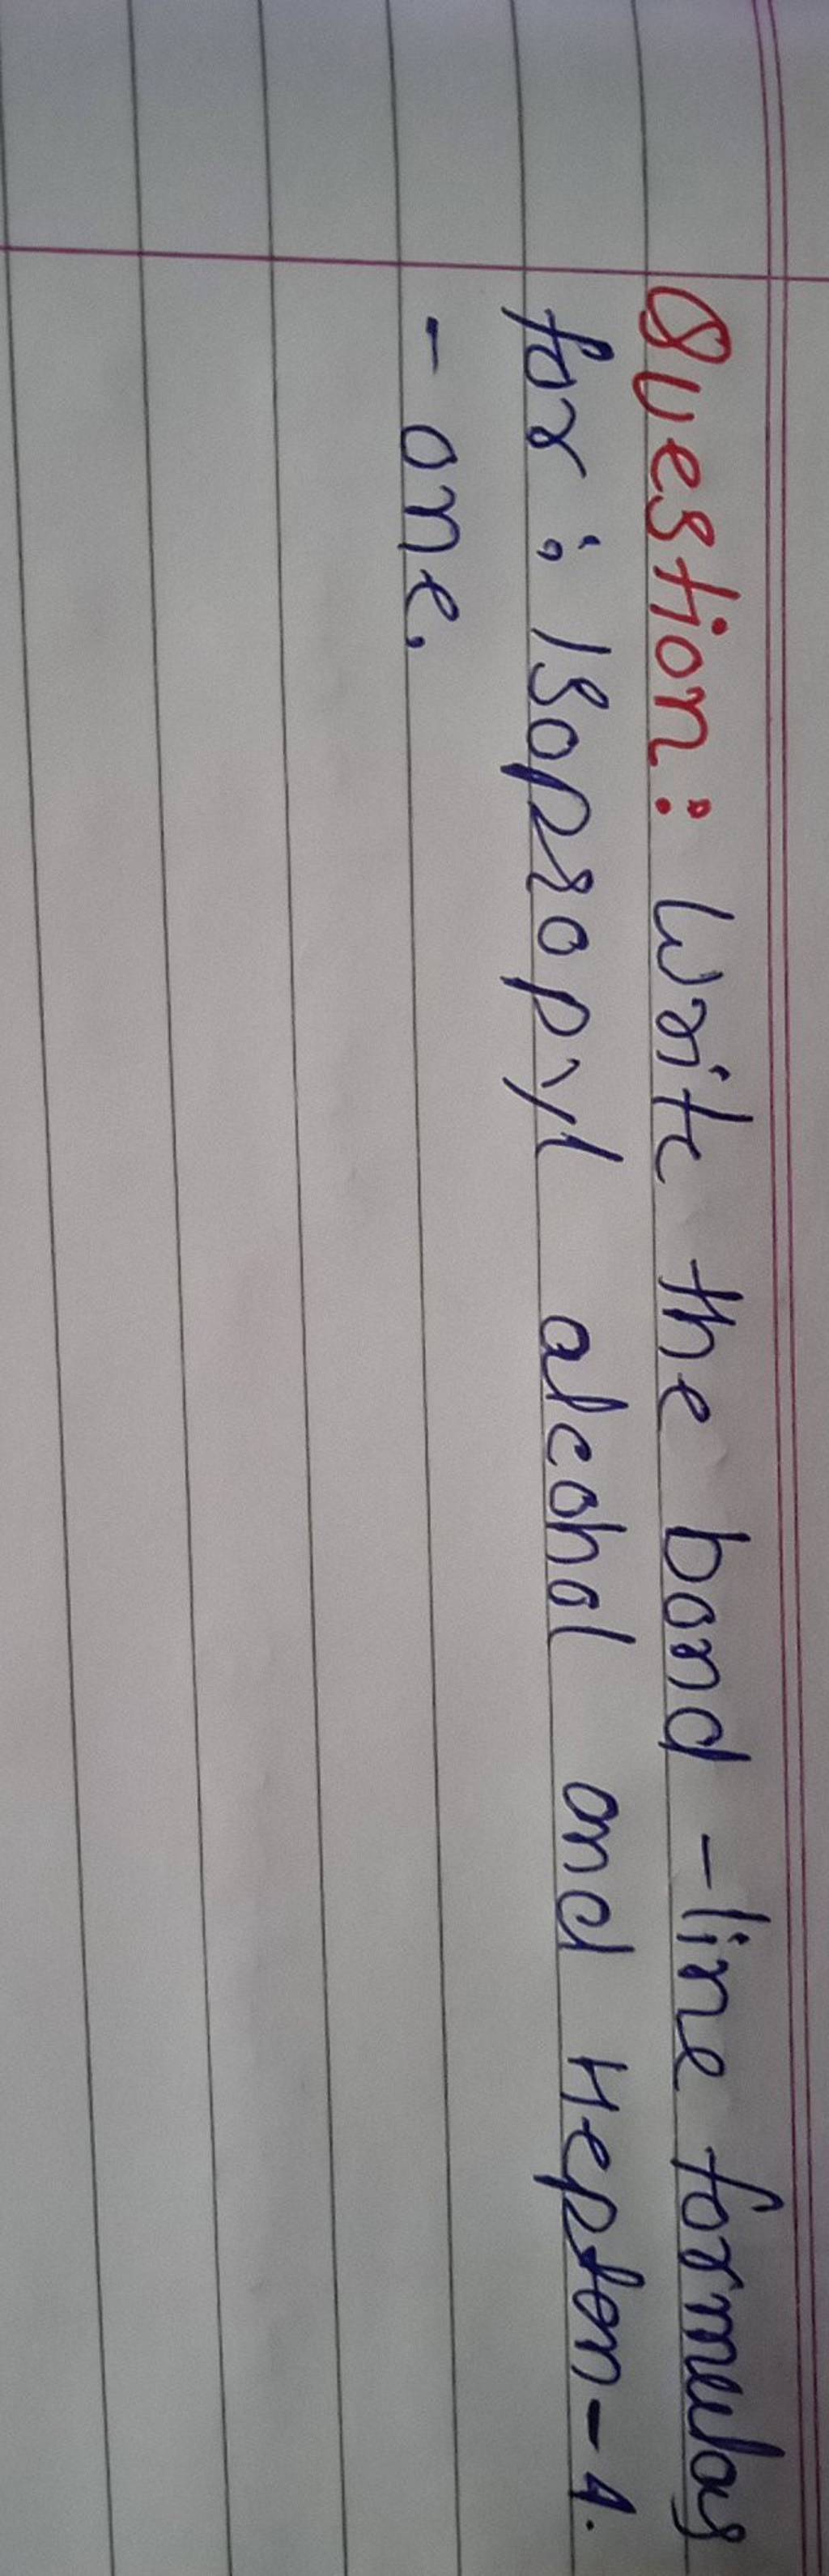 Question: Write the bond -line formulas
for : Isopropyl alcohol and Heptan-4.
- one.